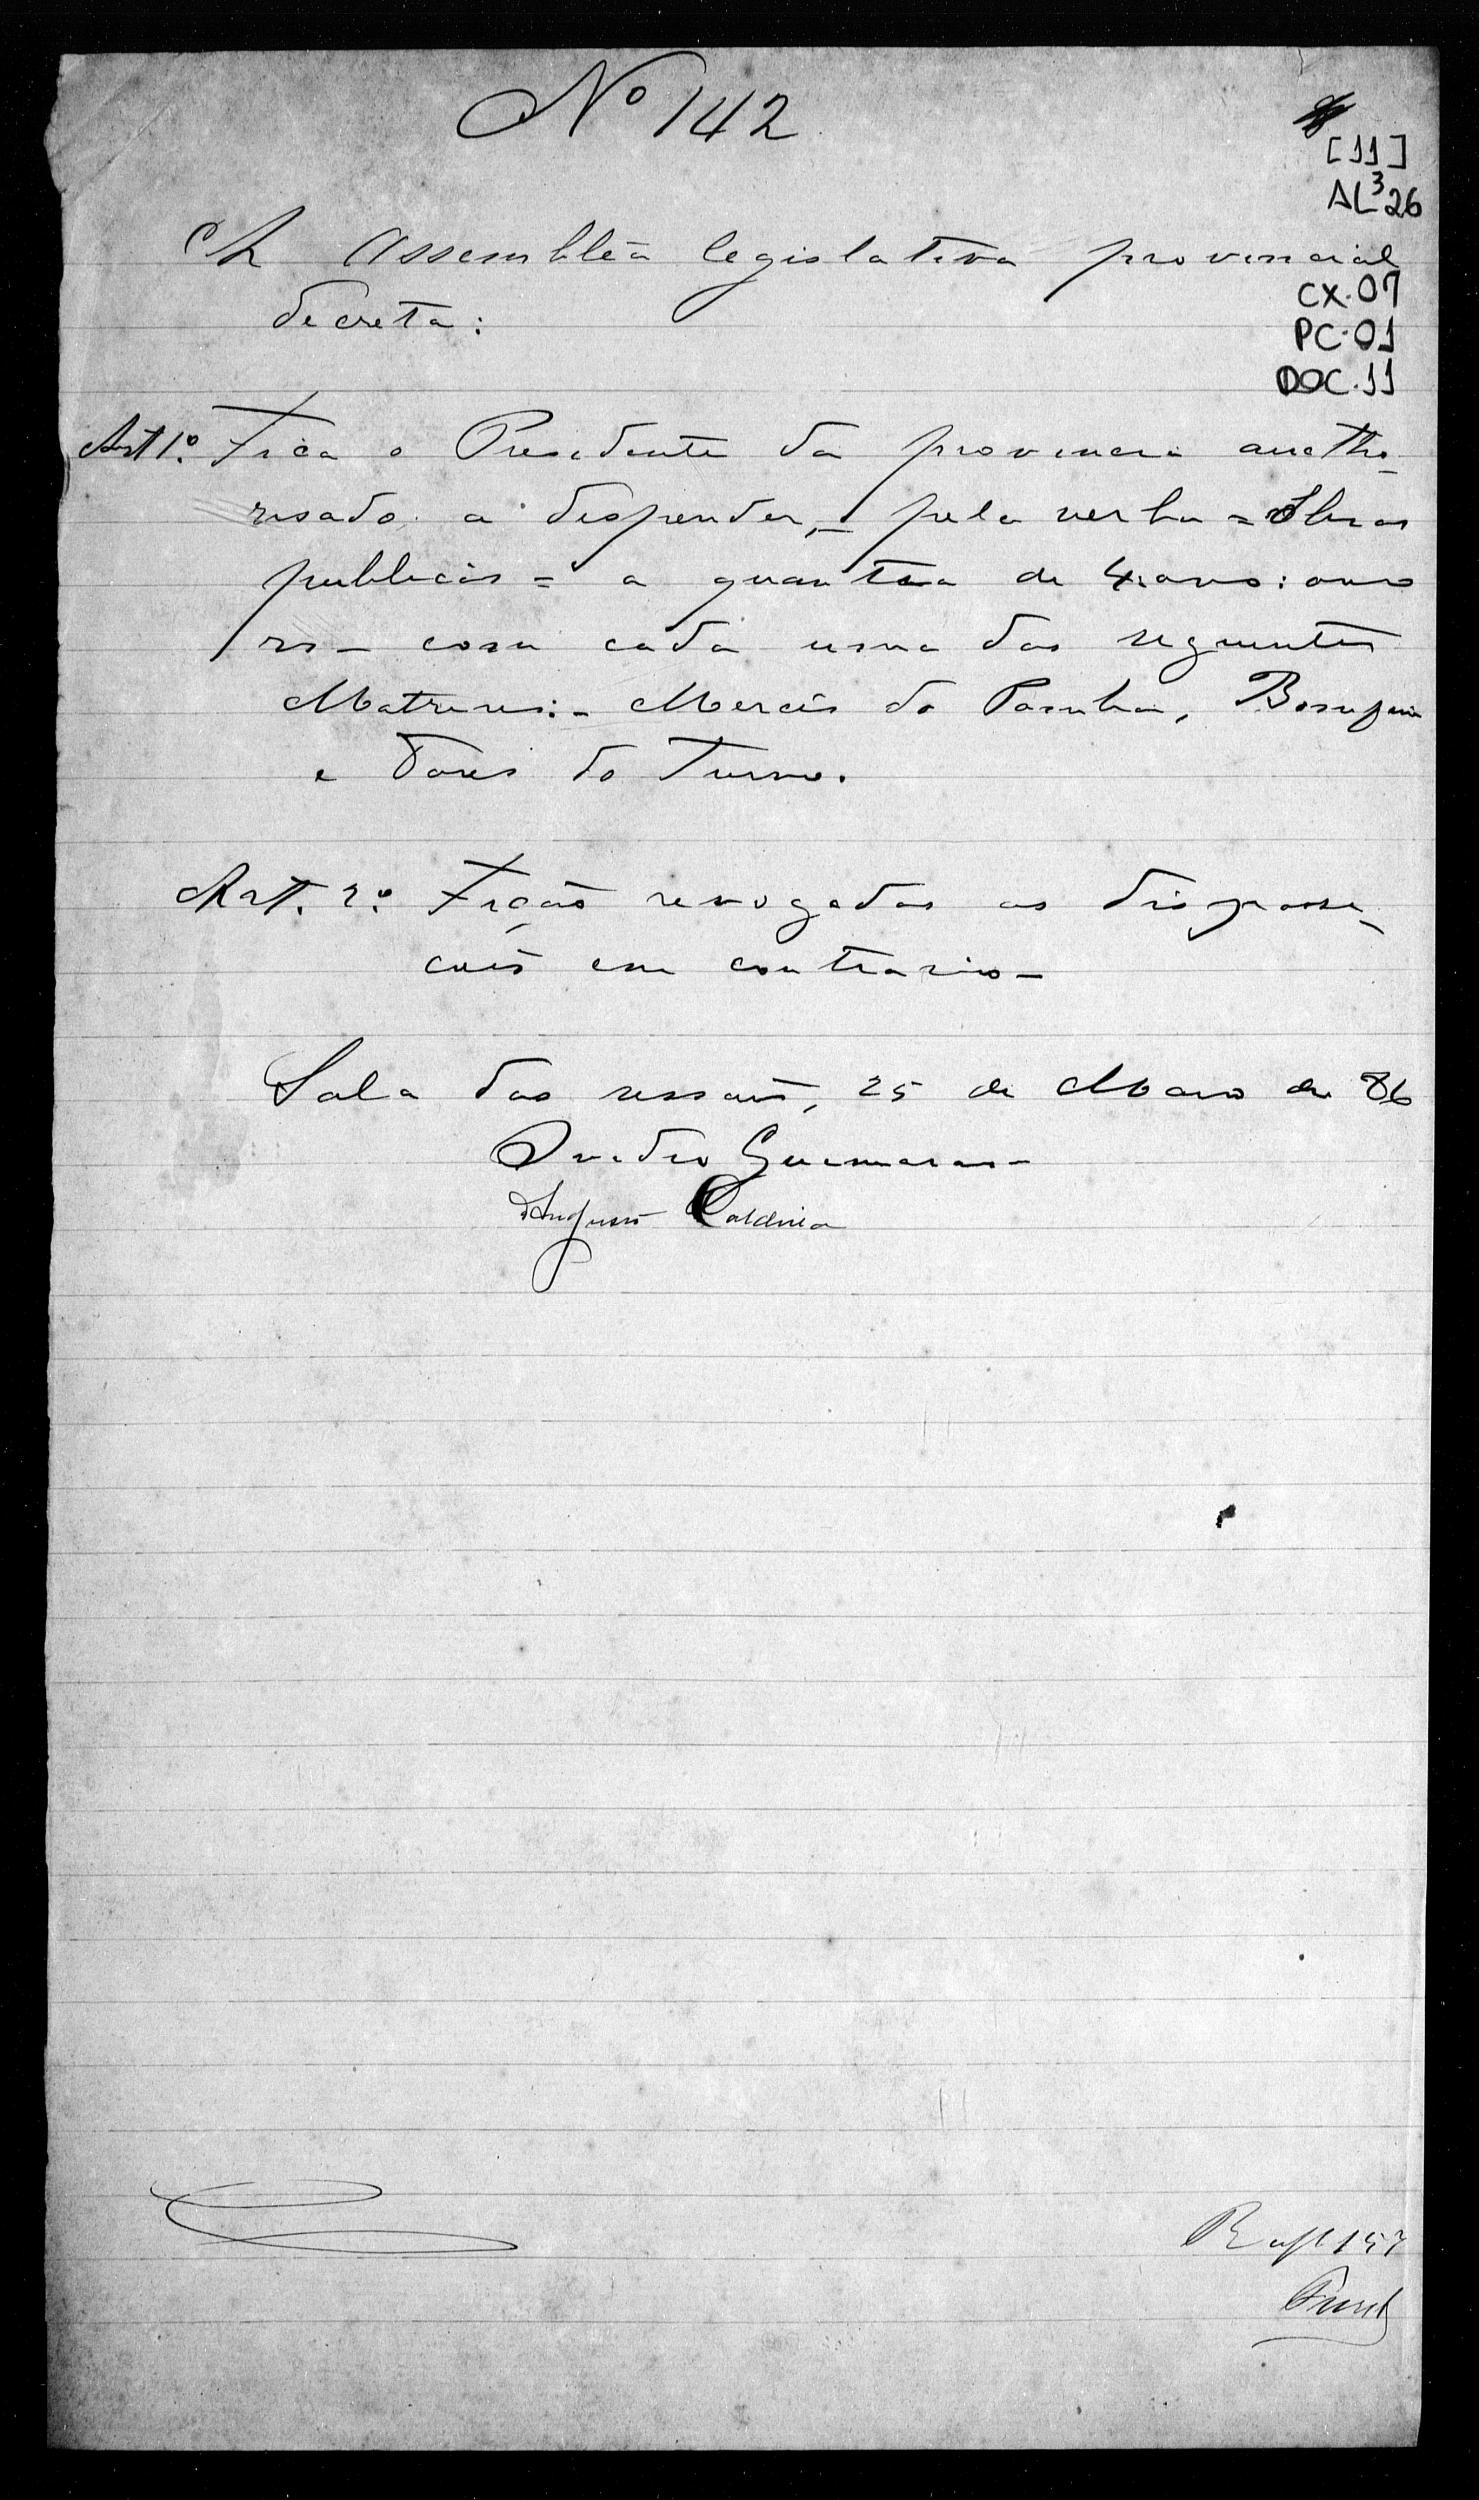 Nº 142
[11]
AL³26
A Assembléa legislativa provincial
CX.07
decreta:
PC.01
DOC.11
Art 1º Fica o Presidente da provincia autho-
risado a despender, - pela verba = Obras
publicas = a quantia de
rs - com cada uma das seguintes
Matrizes: - Mercês do Pomba, Bomfim
e Dores do Turvo.
Art. 2º Ficão revogadas as disposi-
ções em contrario -
Sala das sessões, 25 de de 86
Ovidio Guimarães -
Augusto